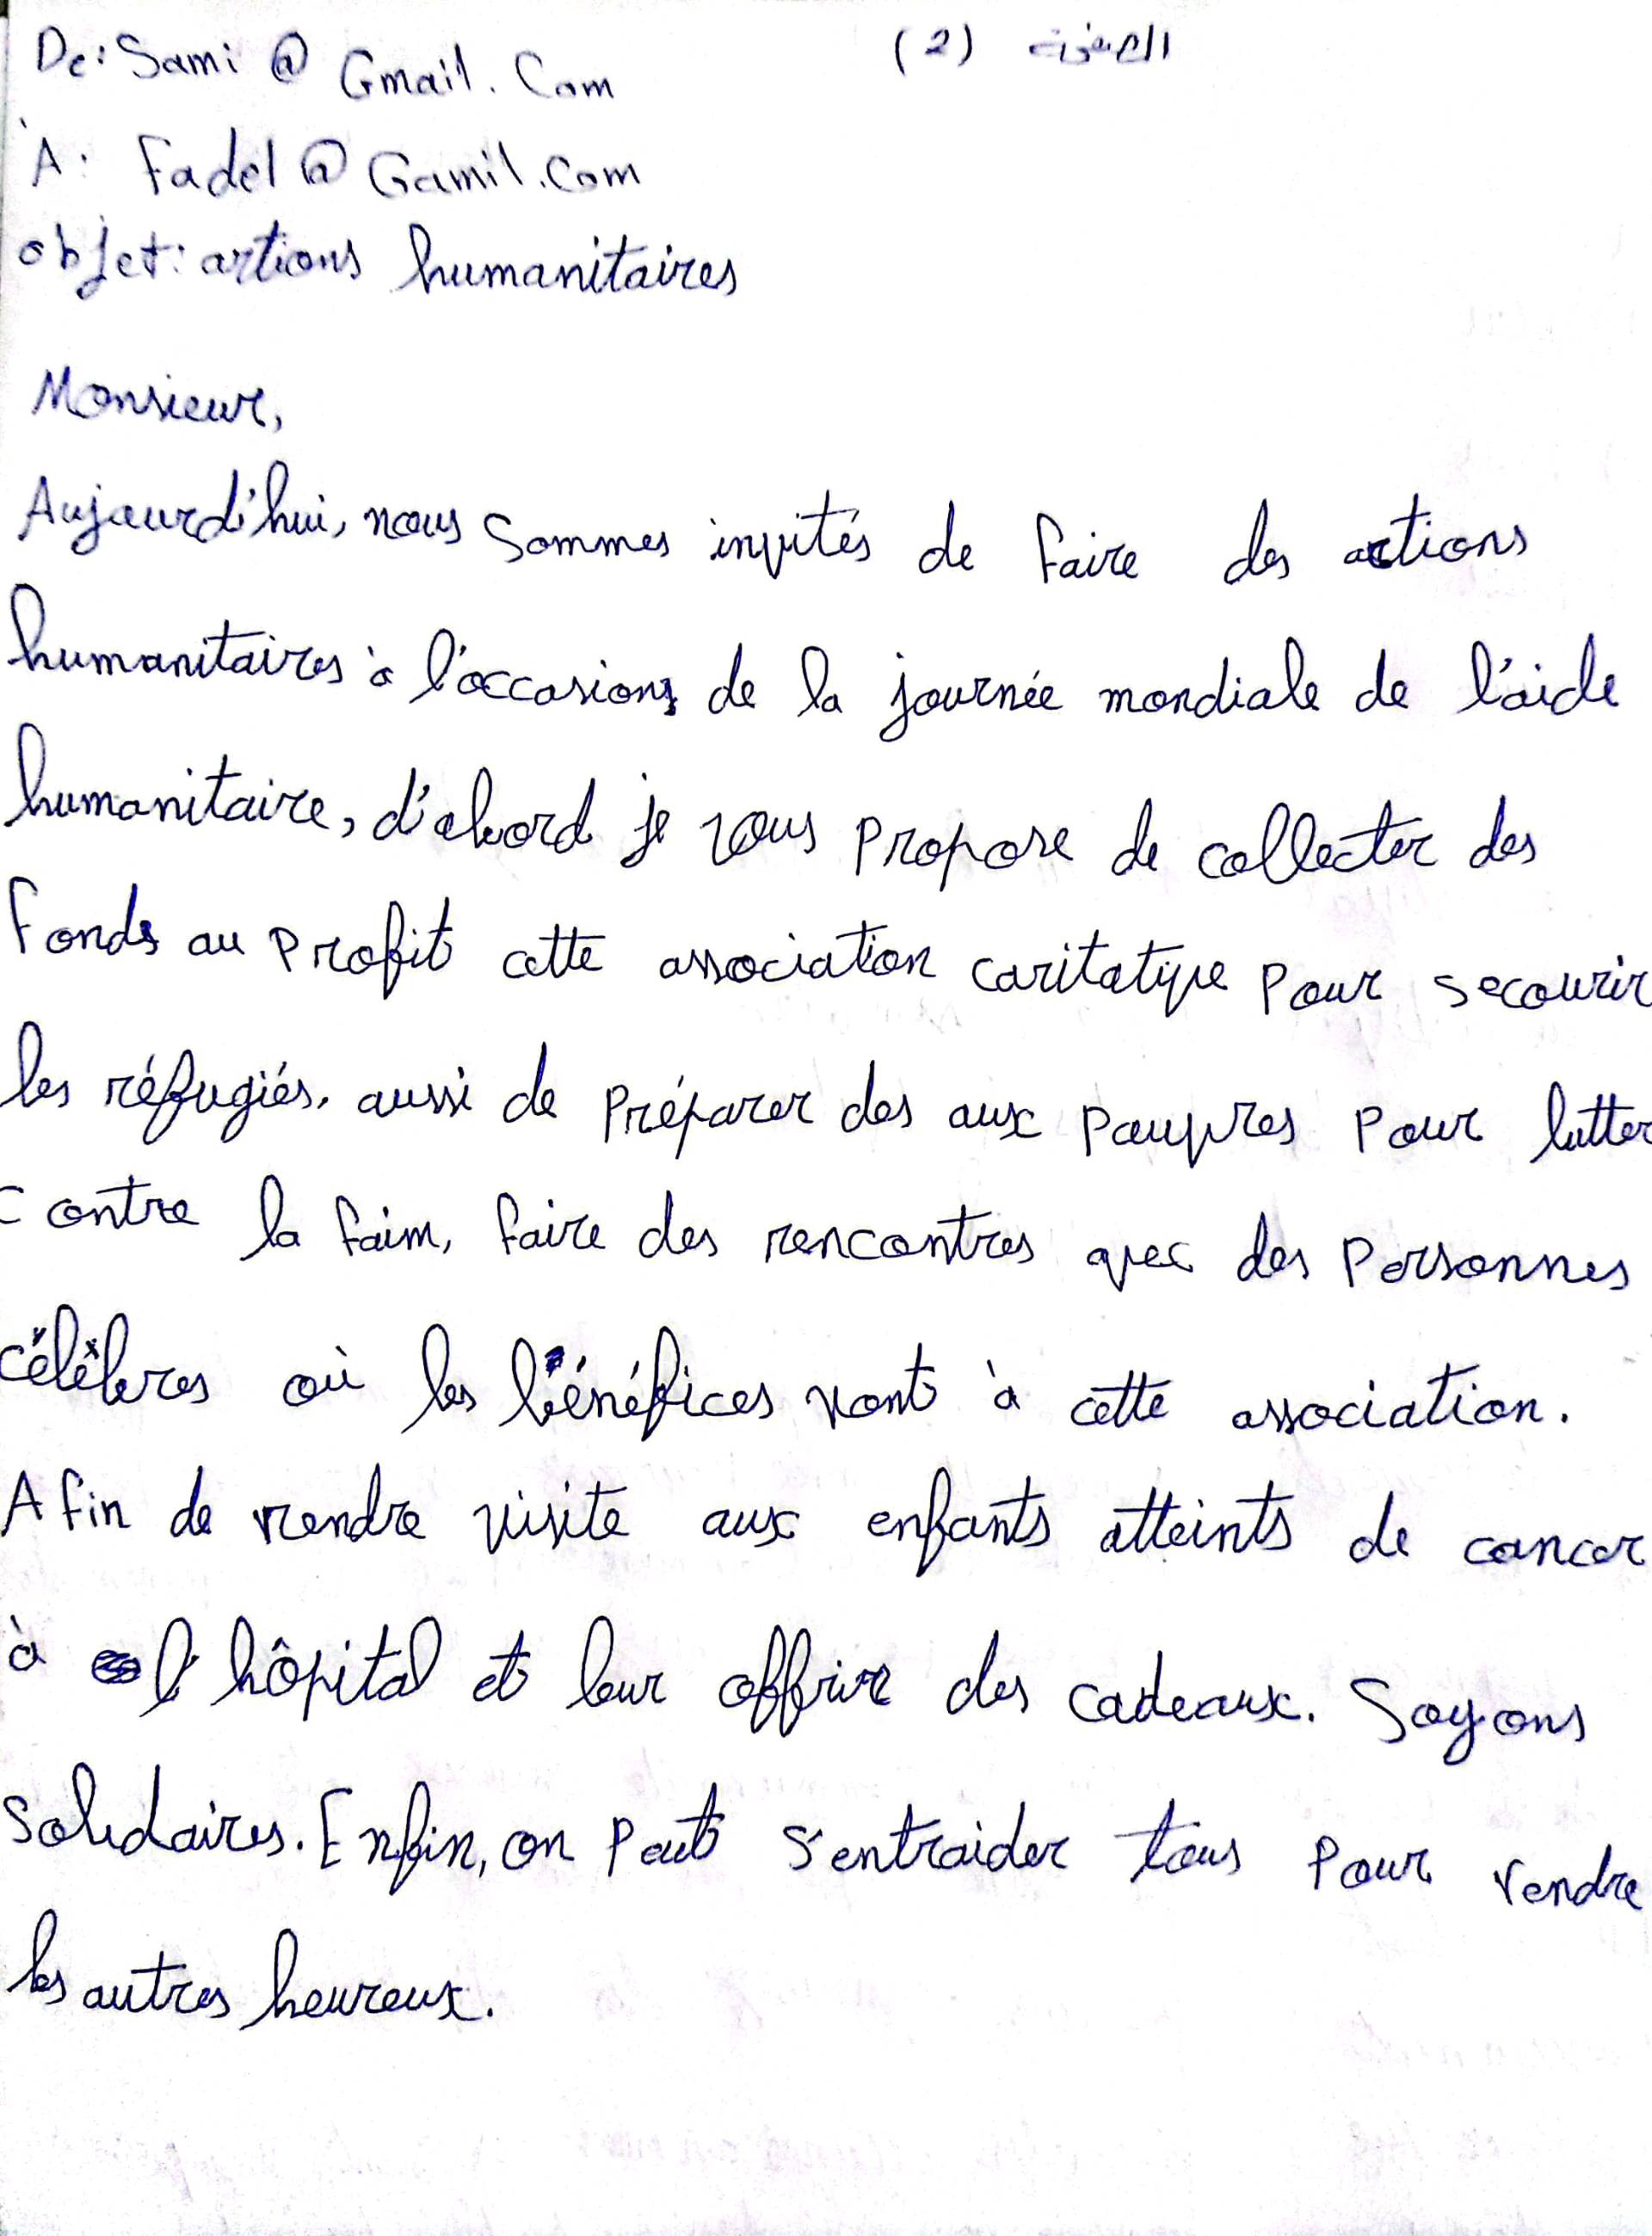 De: Sami @ Gmail. Com
(2) الصفحة
A: Fadel @ Gamil.Com
objet: artions humanitaires
Monsieur,
Aujourd'hui, nous Sommes invités de faire des actions
humanitaires à l'occasions de la journée mondiale de l'aide
humanitaire, d'abord je vous propose de collecter des
Fonds au profit cette association caritative pour secourir
les réfugiés. aussi de préparer des aux pauvres pour lutter
contre la faim, faire des rencontres avec des personnes
célèbres où les bénéfices vont à cette association.
Afin de rendre visite aux enfants atteints de cancer
à l'hôpital et leur offrir des cadeaux. Soyons
Solidaires. Enfin, on peut s'entraider tous pour rendre
les autres heureux.